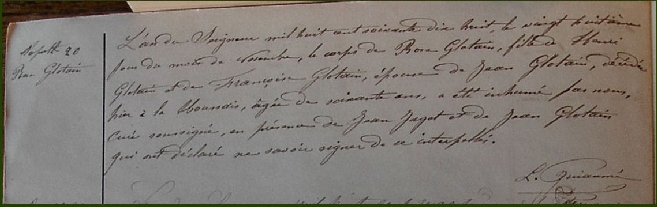 Sépult. 20
Rose Glotain
L'an du Seigneur mil huit cent soixante dix huit, le vingt huitième
jour du mois de Novembre, le corps de Rose Glotain, fille de Henri
Glotain et de Françoise Glotain, épouse de Jean Glotain, décédée
hier à la âgée de soixante ans, a été inhumé par nous,
curé soussigné, en présence de Jean Jagot et de Jean Glotain
qui ont déclaré ne savoir signer de ce interpellés.
L.